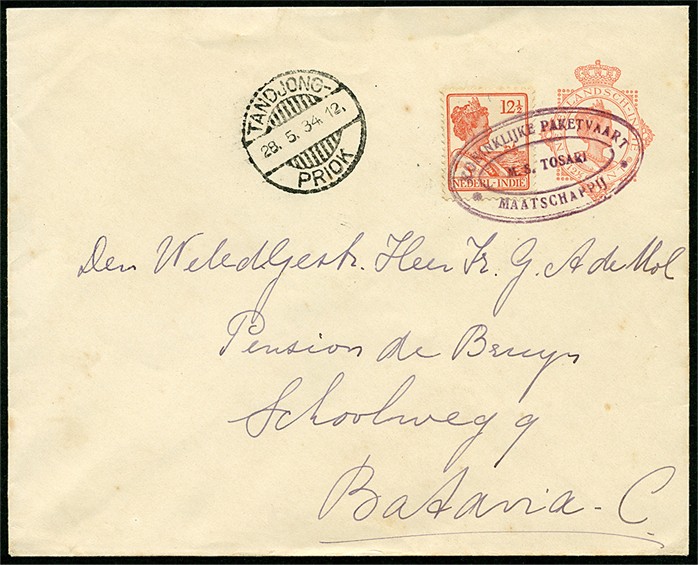 TANDJONG-
28. 5. 34. 12.
PRIOK
12½
NEDERL-INDIE
LANDSCH-IN
KONINKLIJKE PAKETVAART
M. S. TOSARI
MAATSCHAPPIJ
Den WelEd.Gestr. Heer Ir. G. A de Mol
Pension de Bruyn
Schoolweg 9
Batavia - C.